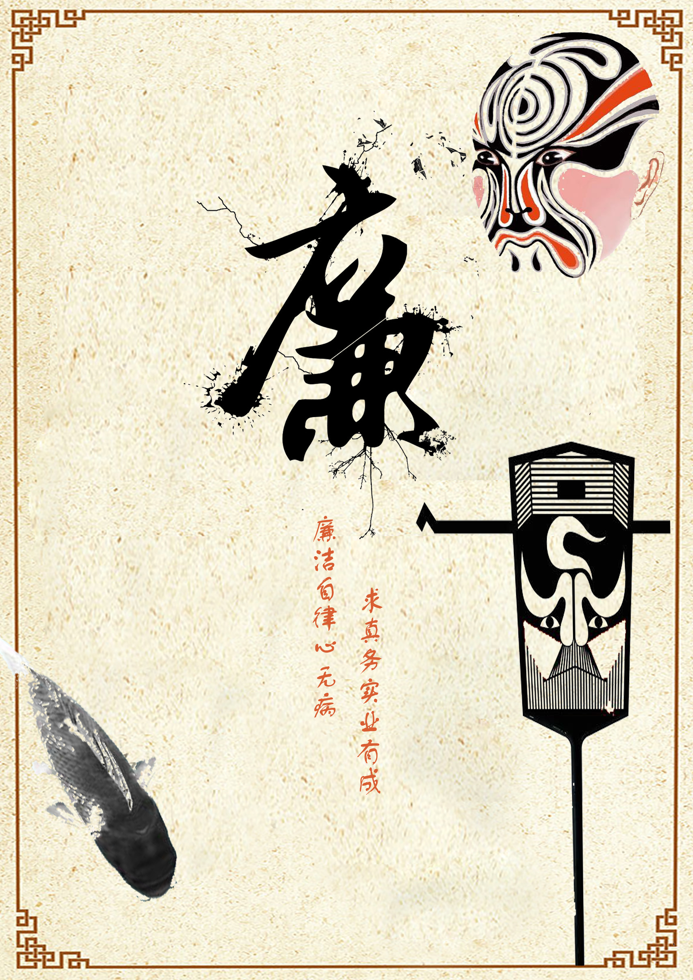 廉
求真务实业有成
廉洁自律心无病